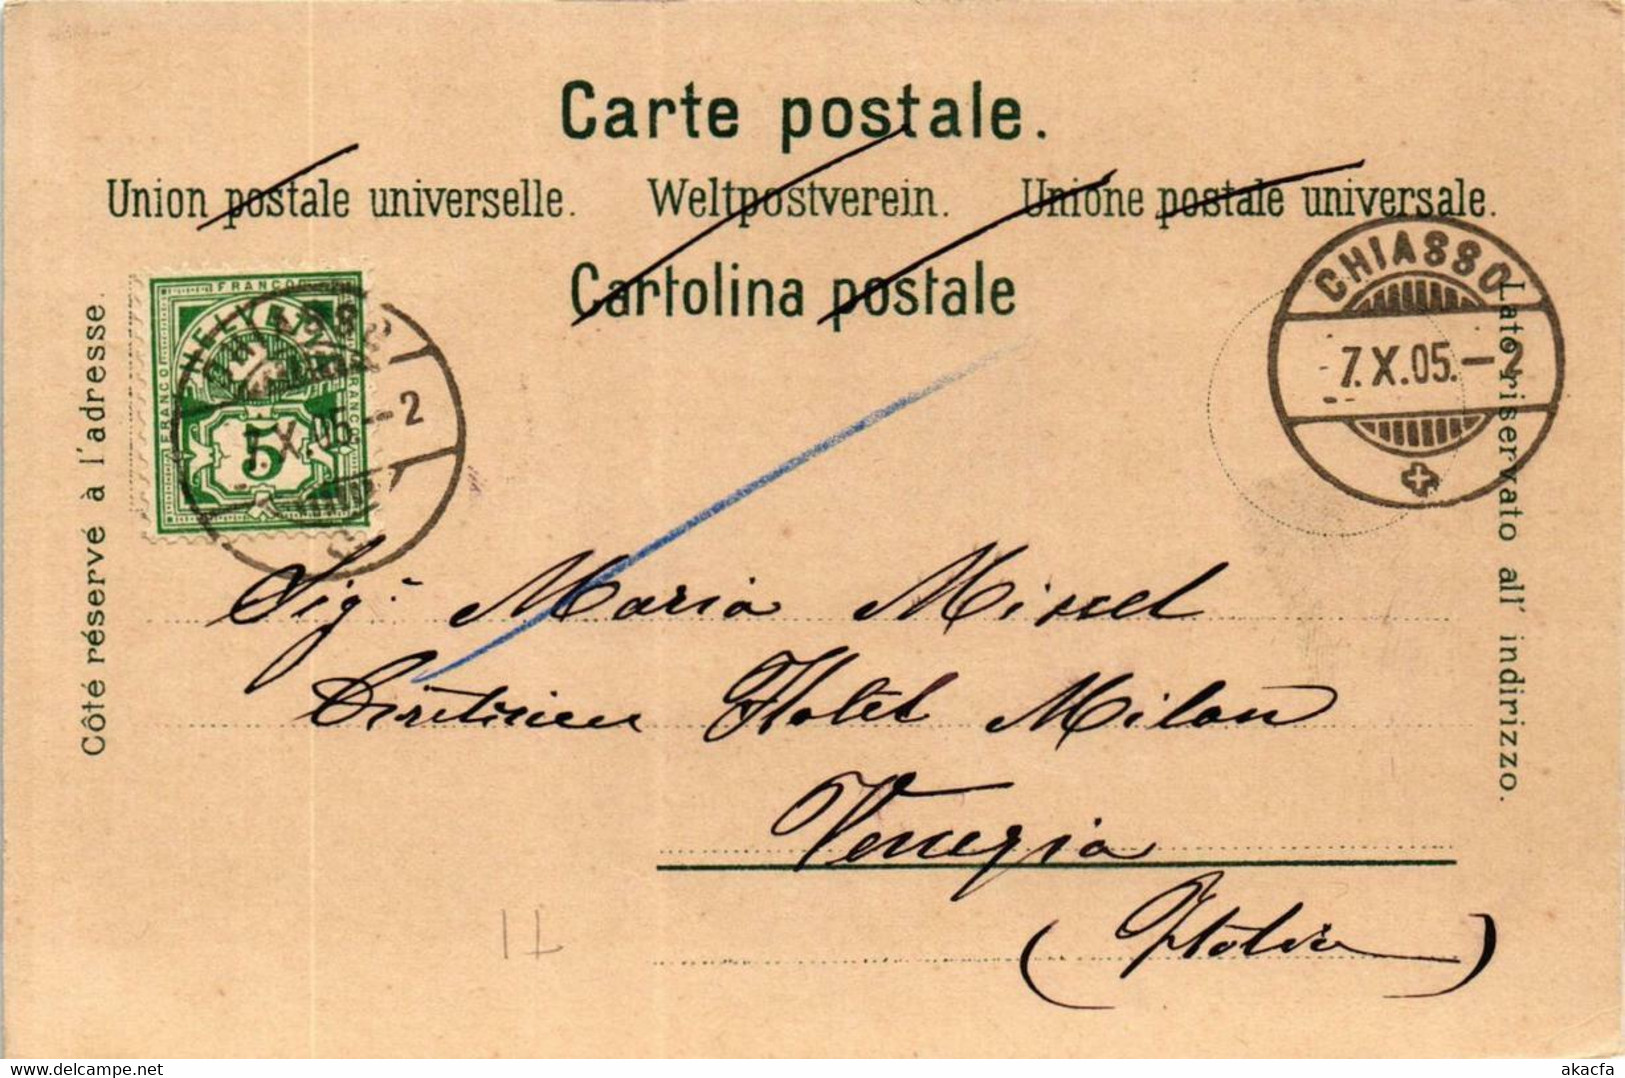 Carte postale.
Union postale universelle. Weltpostverein. Unione postale universale.
Cartolina postale
Côté réservé à l'adresse.
FRANCO
HELVETIA
FRANCO
FRANCO
5
7.X.05.–2
CHIASSO
7.X.05.–2
Lato riservato all' indirizzo.
Sig.ª Maria
Hotel Milan
Venezia
(Italia)
akacfa
delcampe.net